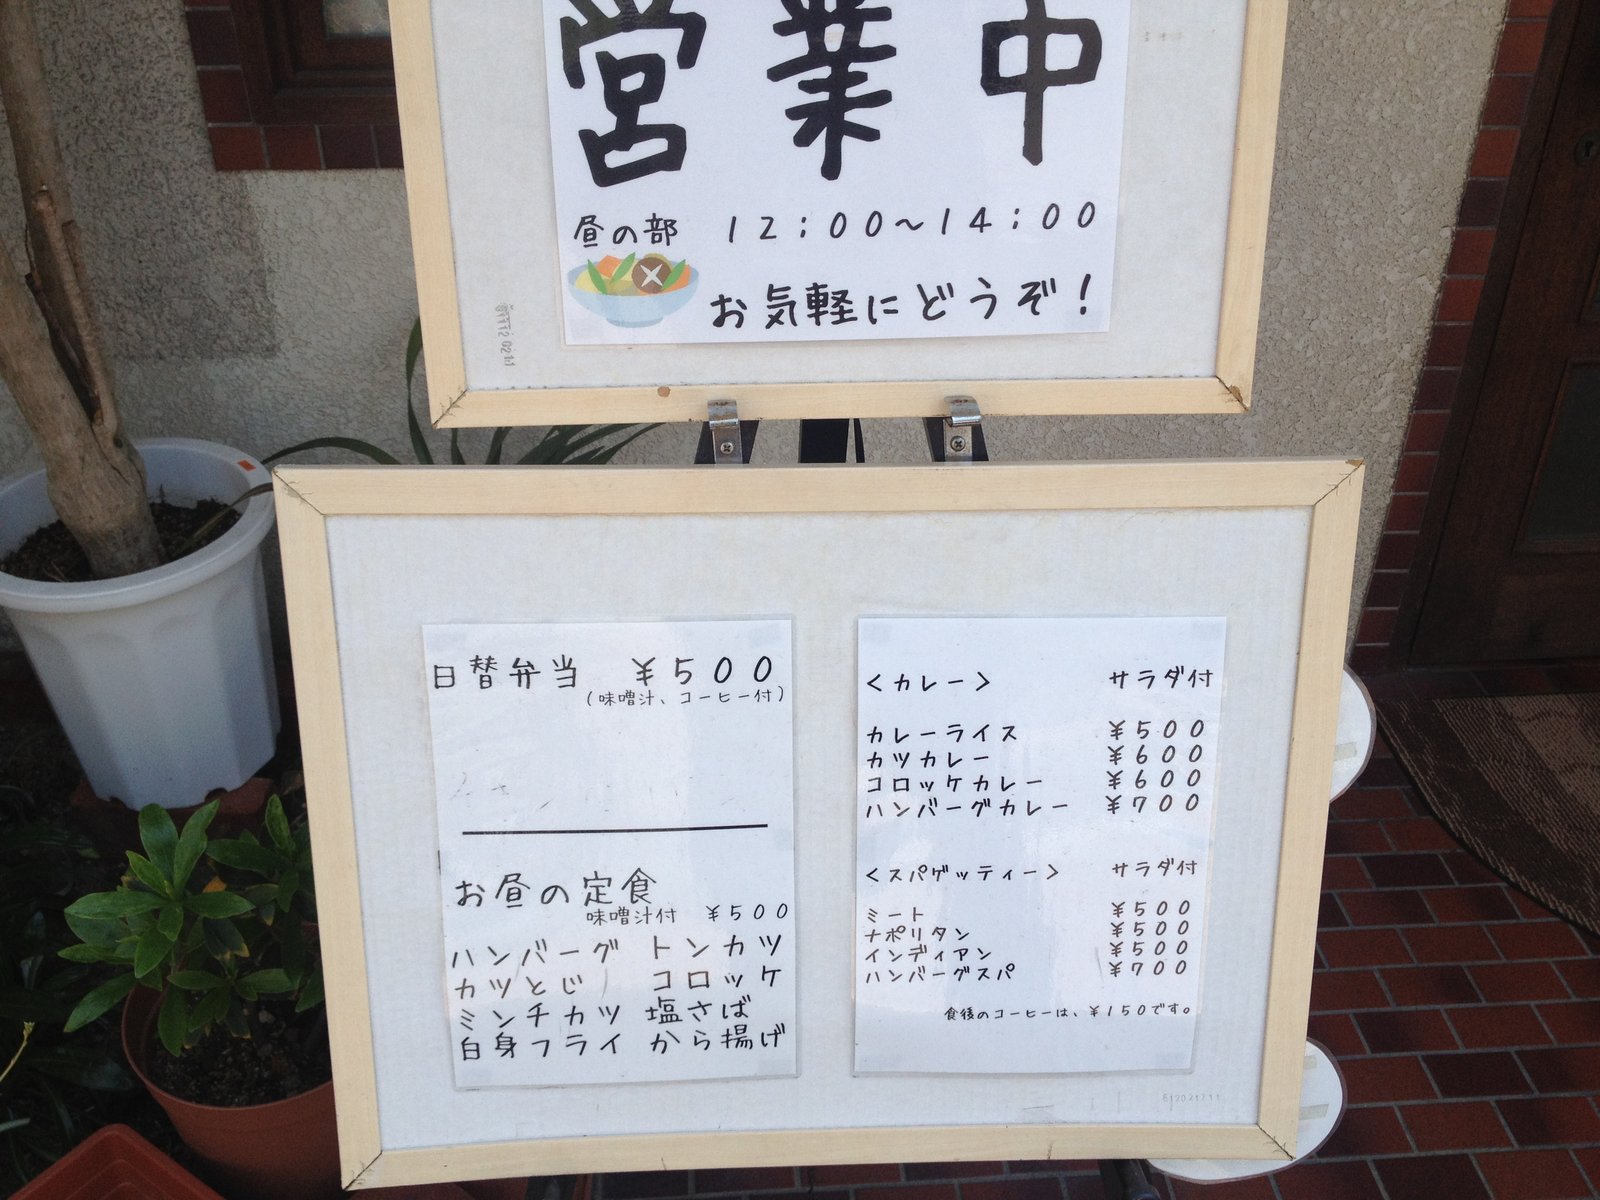 営業中
昼の部 12:00～14:00
お気軽にどうぞ！
日替弁当 ￥500
（味噌汁、コーヒー付）
お昼の定食
味噌汁付 ￥500
ハンバーグ トンカツ
カツとじ コロッケ
ミンチカツ 塩さば
自身フライ から揚げ
＜カレー＞ サラダ付
カレーライス ￥500
カツカレー ￥600
コロッケカレー ￥600
ハンバーグカレー ￥700
＜スパゲッティー＞ サラダ付
ミート ￥500
ナポリタン ￥500
インディアン ￥500
ハンバーグスパ ￥700
食後のコーヒーは、￥150です。